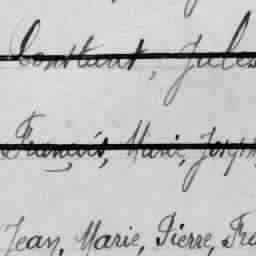 Constant, Jules
François, Marie, Joseph
Jean, Marie, Pierre, Fra